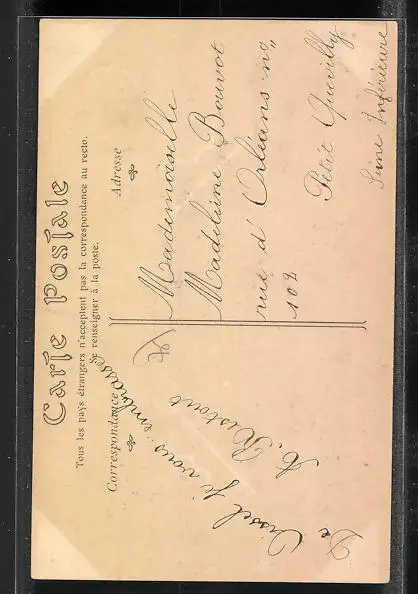 Carte Postale
Tous les pays étrangers n'acceptent pas la correspondance au recto.
Se renseigner à la poste.
Correspondance
Adresse
je vous embrasse
A. Ristout
Mademoiselle
Madeleine Bouvot
rue d'Orléans no
102
Petit Quevilly
Seine Inférieure